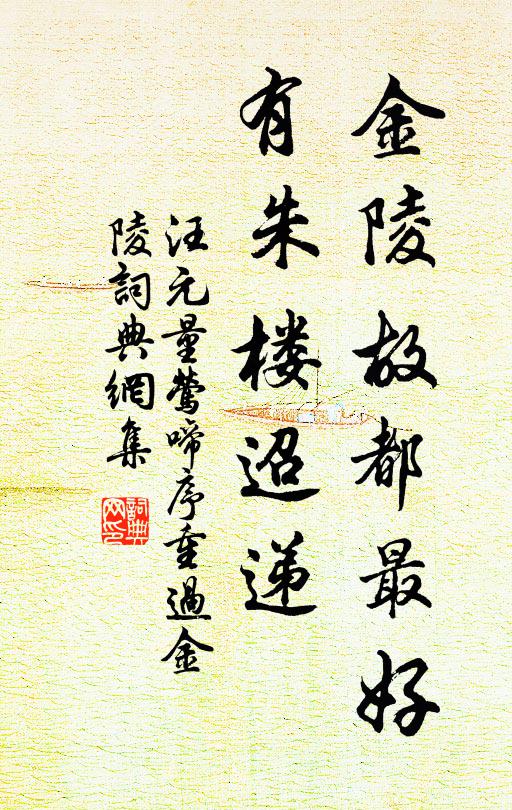 金陵故都最好
有朱楼迢递
汪元量莺啼序重過金
陵詞典網集
詞典
网印